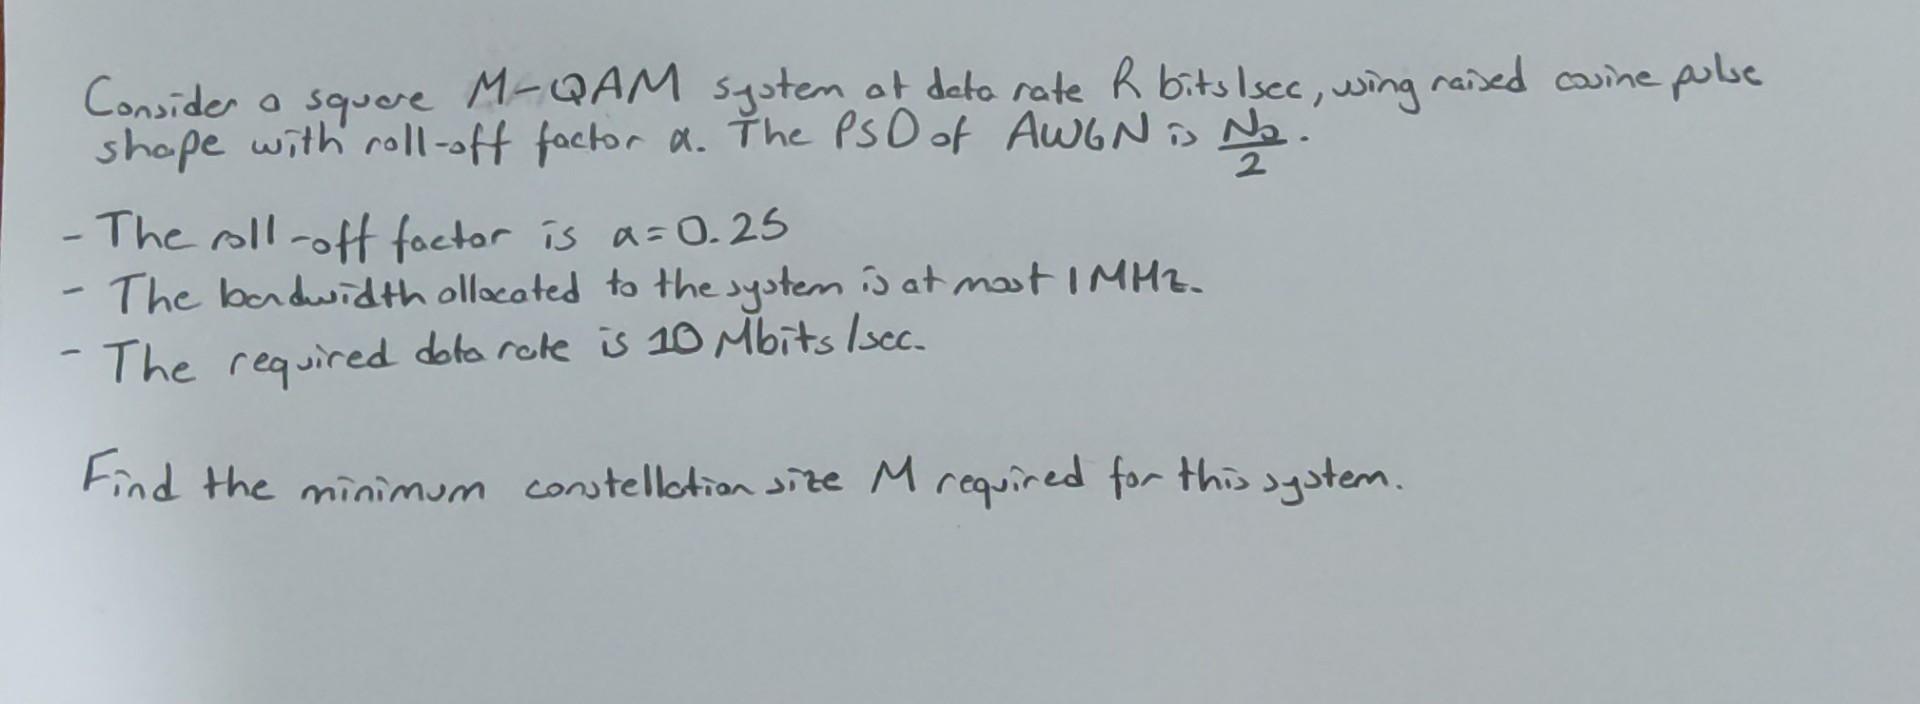 Consider a square M-QAM system at data rate R bits/sec, using raised cosine pulse
shape with roll-off factor α. The PSD of AWGN is N₀/2.
- The roll-off factor is α=0.25
- The bandwidth allocated to the system is at most 1 MHz.
- The required data rate is 10 Mbits/sec.
Find the minimum constellation size M required for this system.